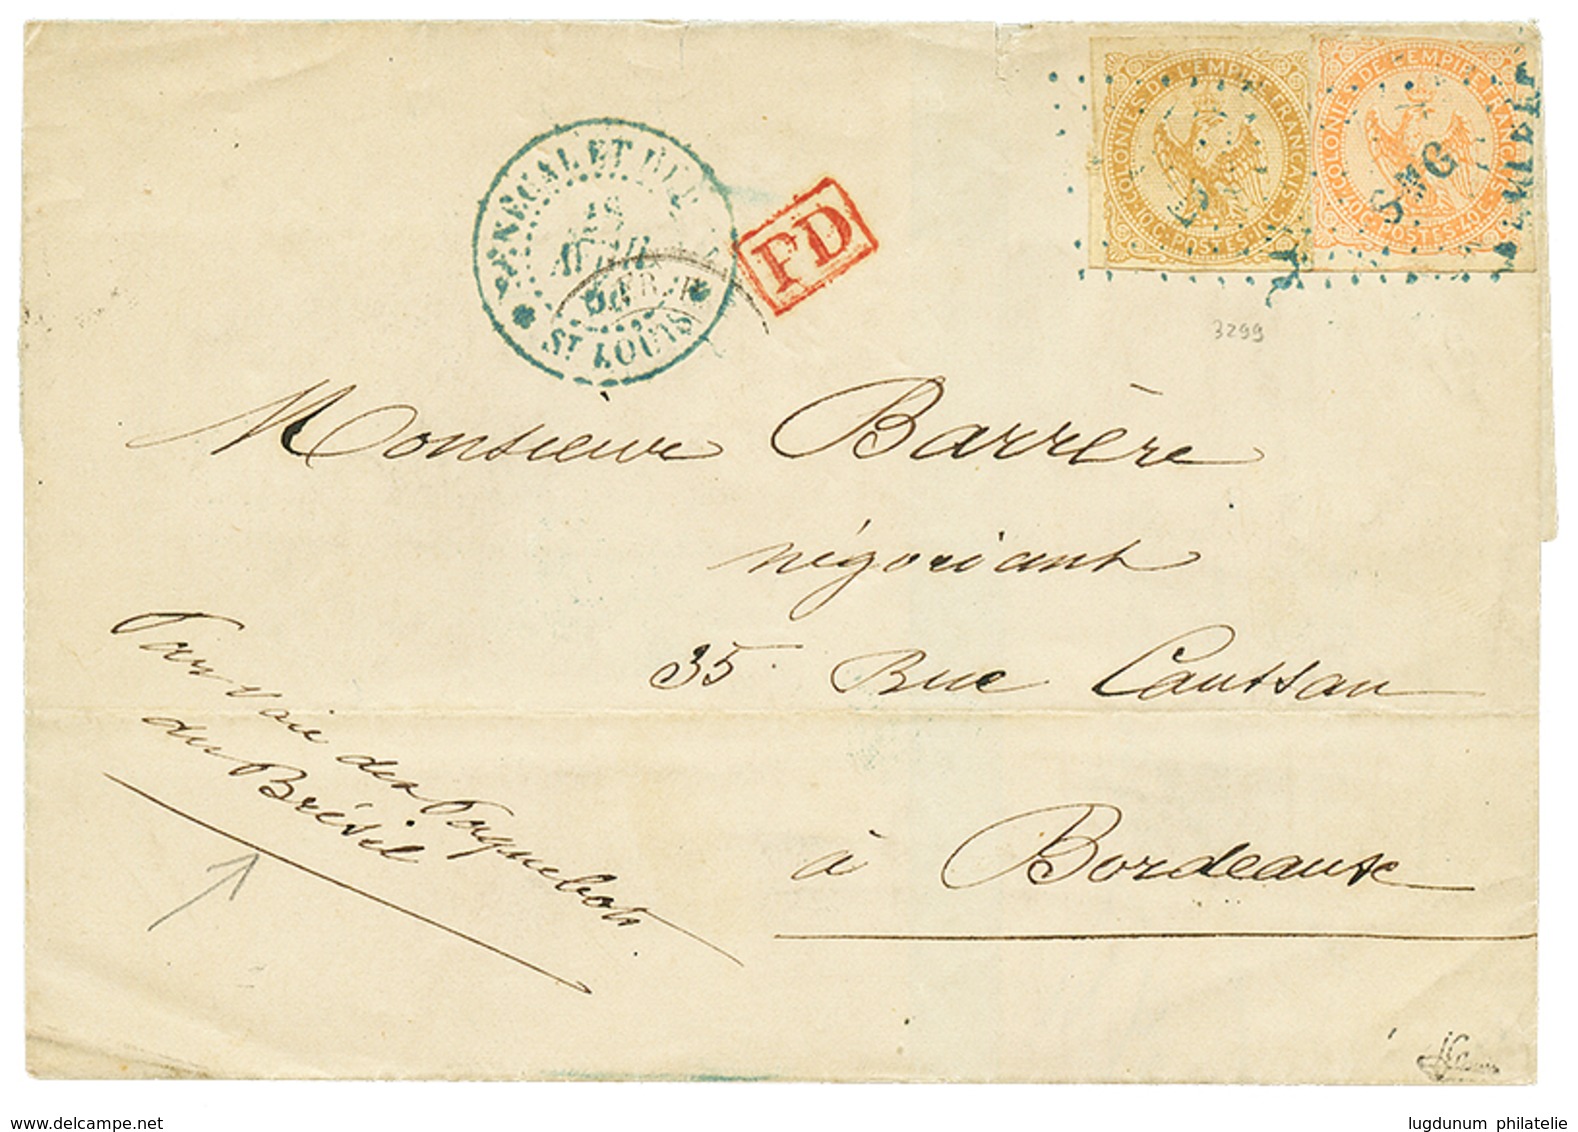 COLONIES DE L'EMPIRE FRANÇAIS
10c. POSTES. 10c
COLONIES DE L'EMPIRE FRANÇAIS
40c. POSTES. 40c
SNG
SÉNÉGAL ET
18
AVRIL
ST LOUIS
PD
3299
Monsieur Barrère
négociant
35 Rue Caussan
à Bordeaux
Par voie des Paquebots
du Brésil
www.delcampe.net
lugdunum philatelie